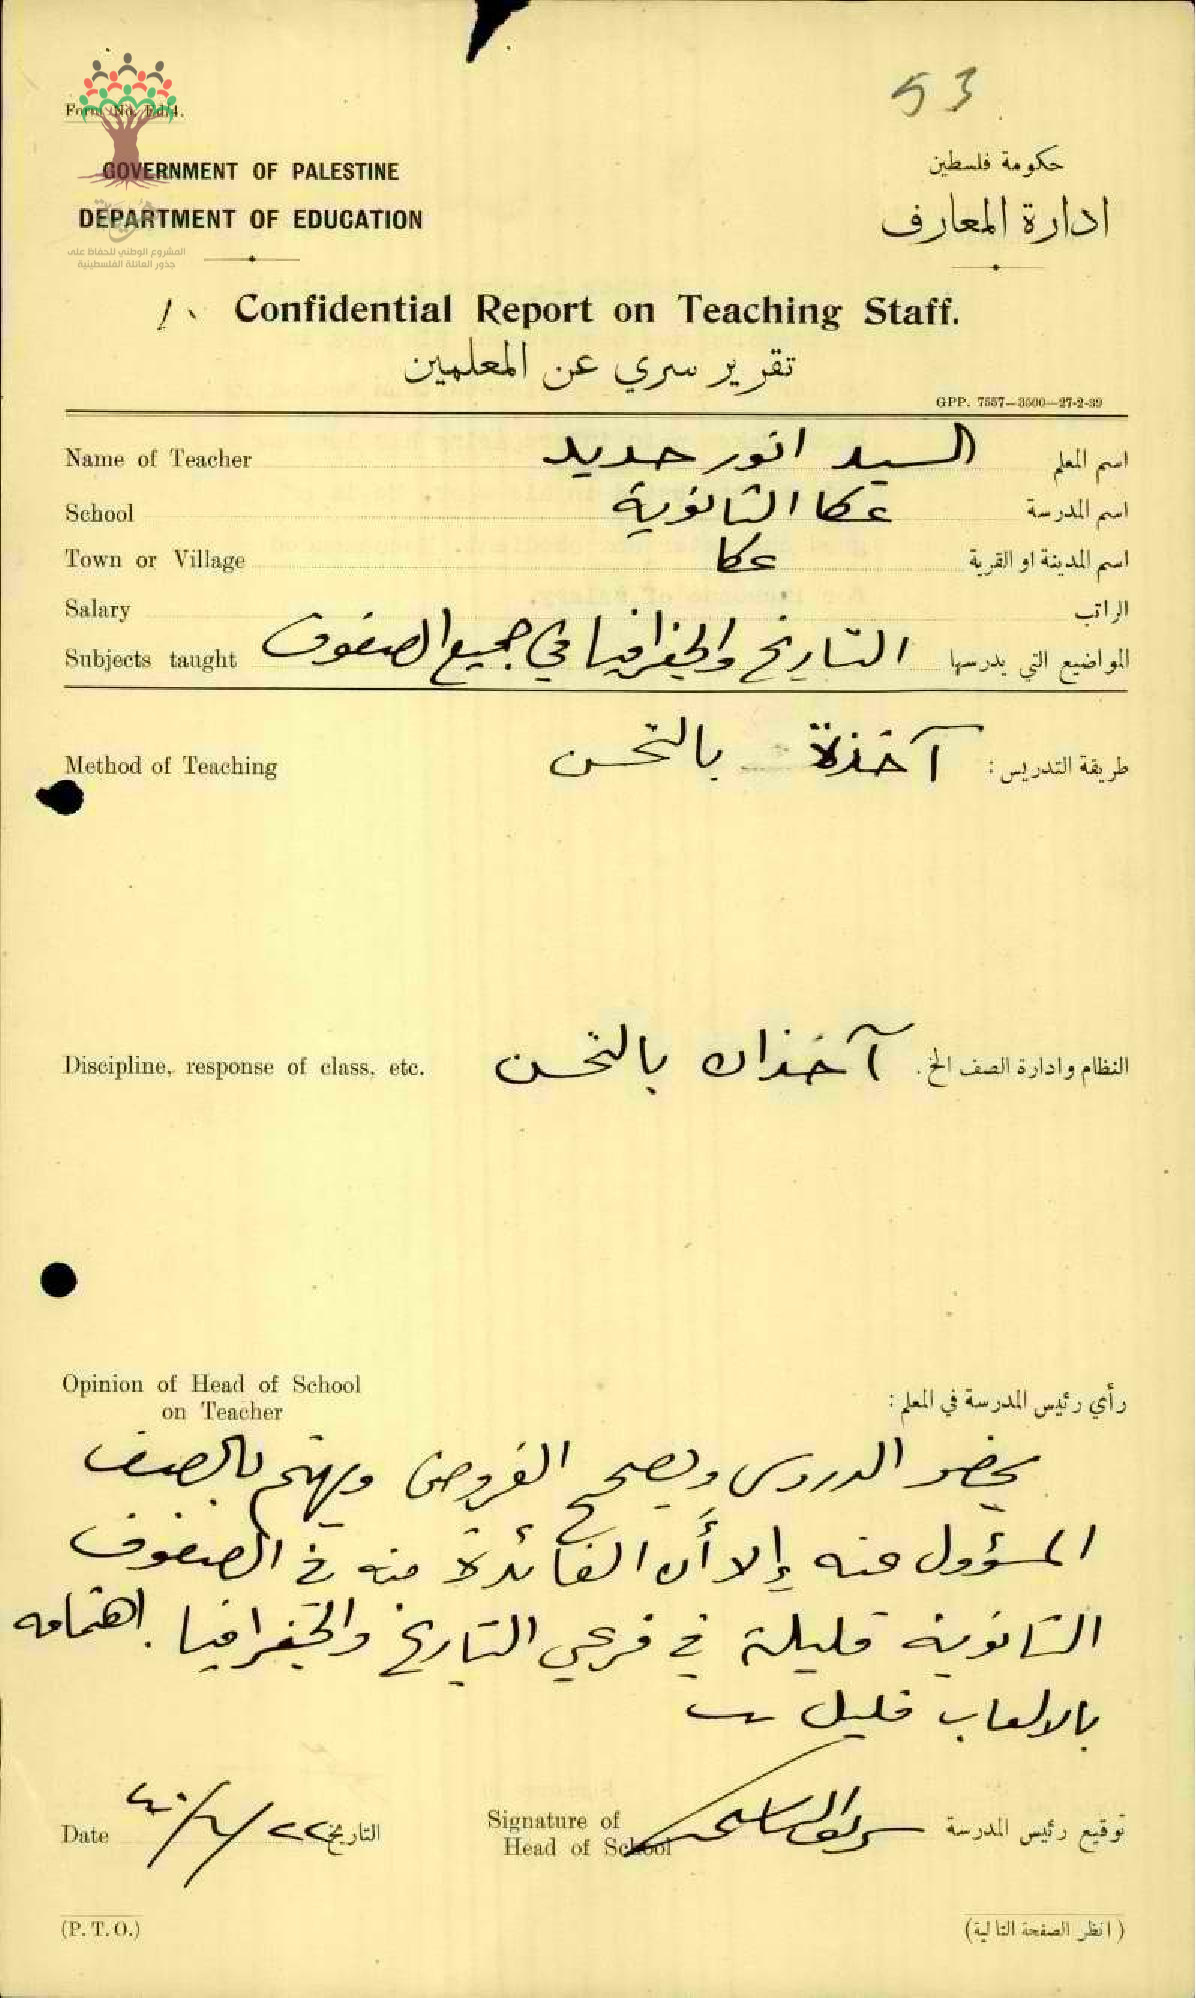 53
Form No. Ed/4.
GOVERNMENT OF PALESTINE
حكومة فلسطين
DEPARTMENT OF EDUCATION
ادارة المعارف
المشروع الوطني للحفاظ على
جذور العائلة الفلسطينية
Confidential Report on Teaching Staff.
تقرير سري عن المعلمين
GPP. 7557—3500—27-2-39
Name of Teacher السيد انور حديد اسم المعلم
School عكا الثانوية اسم المدرسة
Town or Village عكا اسم المدينة او القرية
Salary الراتب
Subjects taught التاريخ والجغرافيا في جميع الصفوف المواضيع التي يدرسها
Method of Teaching آخذة بالتحسن طريقة التدريس :
Discipline, response of class, etc. آخذان بالتحسن النظام وادارة الصف الخ .
Opinion of Head of School
on Teacher
رأي رئيس المدرسة في المعلم :
يحضر الدروس ويصحح الفروض ويهتم بالصف
المسؤول عنه إلا أن الفائدة منه في الصفوف
الثانوية قليلة في فرعي التاريخ والجغرافيا . اهتمامه
بالالعاب قليل
Date ٢٢/٦/٤٠ التاريخ
Signature of
Head of School
توقيع رئيس المدرسة
(P. T. O.)
( انظر الصفحة التالية )